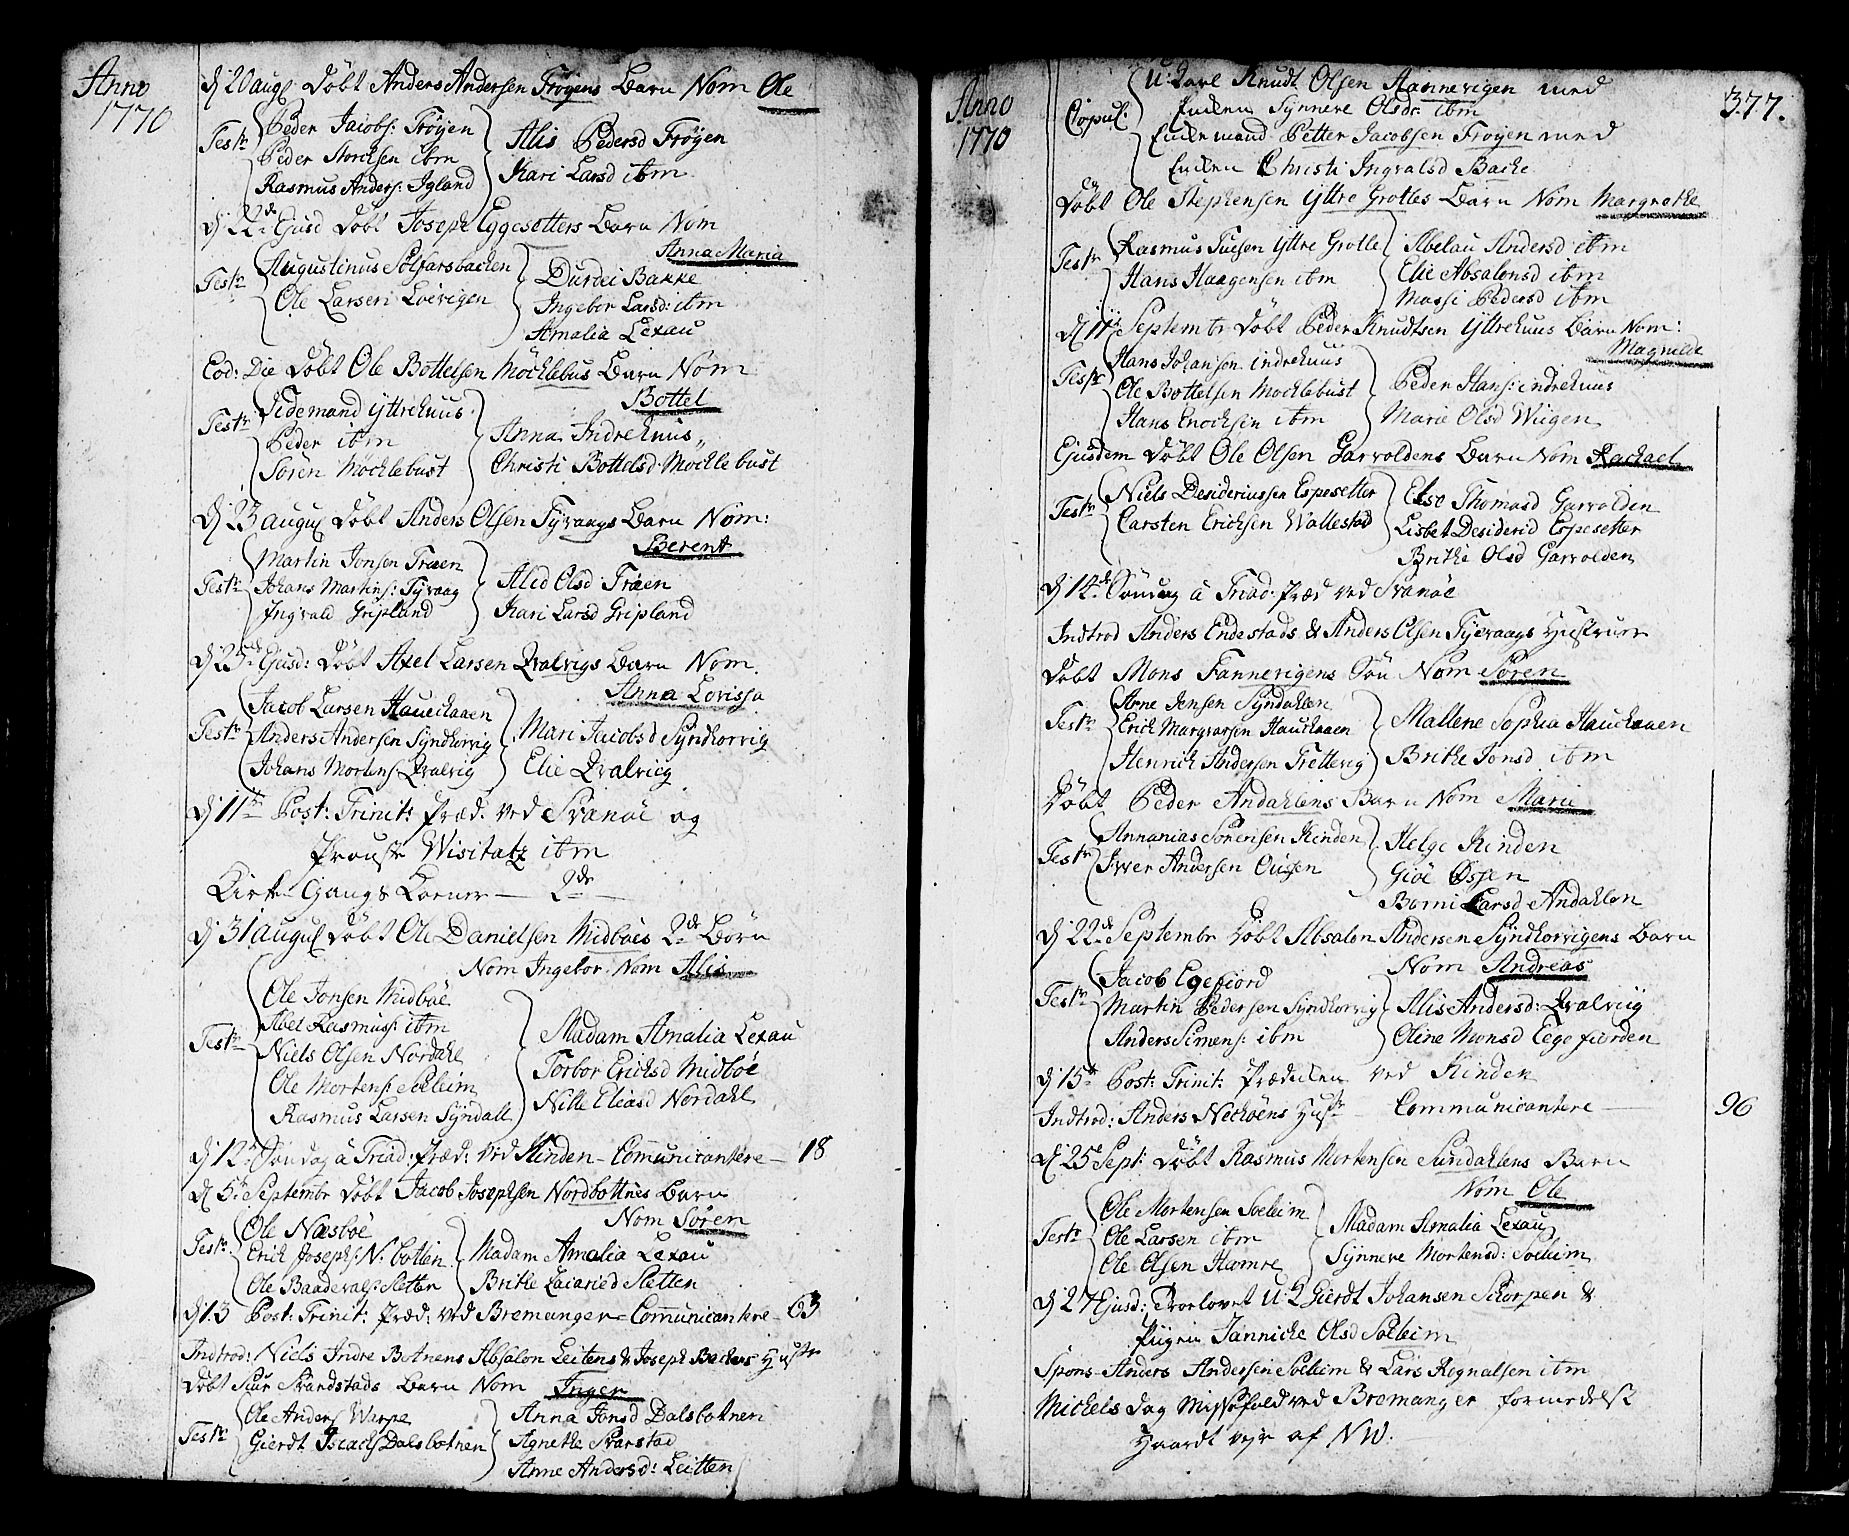 Anno
1770
d. 20 aug. Døbt Anders Andersen Frøyens Barn Nom Ole
Test: Peder Jacobs: Frøyen
Peder Storchsen ibm
Rasmus Anders: Igland
Alis Pedersd Frøyen
Kari Larsd ibm
d. 22de Ejusd Døbt Joseph Eggesetters Barn Nom
Anna Maria
Test: Augustinus Solfarsbacken
Ole Larsen Loevigen
Durdei Bakke
Ingebor Larsd: ibm
Amalia Lexau
Eod: Die Døbt Ole Bottelsen Möchlebus Barn Nom
Bottel
Test: Tidemand Yttrehuus
Peder ibm
Søren Möchlebust
Anna Indrehuus
Christi Bottelsd Möchlebust
d. 23 augus Døbt Anders Olsen Tyvaags Barn Nom:
Berent
Test: Martin Jonsen Træen
Johans Martins: Tyvaag
Ingvald Gripland
Alid Olsd Træen
Kari Larsd Gripland
d. 25de Ejusd: Døbt Axel Larsen Qvalvigs Barn Nom
Anna Lovissa
Test: Jacob Larsen Hauchaaen
Anders Andersen Syndhorvig
Johans Mortens: Qvalvig
Mari Jacobsd Syndhorvig
Elie Qvalvig
d. 11te Post: Trinit: Præd. ved Svanøe og
Proustr Wisitatz ibm
Kirk Gangs Koener — 2de —
d. 31 augus Døbt Ole Danielsen Midbøes 2de Børn
Nom Ingebor. Nom Alis
Test: Ole Jonsen Midbøe
Abel Rasmuss: ibm
Niels Olsen Nordahl
Ole Mortens: Soelheim
Rasmus Larsen Syndall
Madam Amalia Lexau
Torbor Erichsd Midbøe
Nille Eliasd Nordahl
d. 12te Søndag a Triad: Præd: ved Kinden — Communicantere — 18
d. 5te Septembr Døbt Jacob Josephsen Nordbottnes Barn
Nom Søren
Test: Ole Næsbøe
Erich Josephs: N. botten
Ole Baardevals: Sletten
Madam Amalia Lexau
Brithe Zacaried Sletten
d. 13 Post: Trinit: Præd: ved Bremanger — Communicantere — 63
Indtrod: Niels Indre Botnens Absalon Leitens & Joseph Backes Hustr
Døbt Siur Svardstads Barn Nom Inger
Test: Ole Anders: Warpe
Gierdt Isachs: Dalsbotnen
Anna Jonsd Dalsbotnen
Agnethe Svarstad
Anne Andersd: Leitten
Anno
1770
377.
Copul: U: Karl Knudt Olsen Hannevigen med
Enken Synnere Olsdr: ibm
Enkemand Petter Jacobsen Frøyen med
Enken Christi Ingvalsd Backe
Døbt Ole Stephensen Yttre Grottes Barn Nom Margrethe
Test: Rasmus Tuesen Yttre Grotte
Hans Haagensen ibm
Abelau Andersd ibm
Elie Absalonsd ibm
Massi Pedersd ibm
d. 11te Septembr Døbt Peder Knudtsen Yttrehuus Barn Nom:
Magnilde
Test: Hans Johansen indrehuus
Ole Bottelsen Mochlebust
Hans Enochsen ibm
Peder Hans: indrehuus
Marie Olsd Wiigen
Ejusdem Døbt Ole Olsen Garvoldens Barn Nom Rachael
Test: Niels Desideriussen Espesetter
Carsten Erichsen Wallestad
Else Thomasd Garvolden
Lisbet Desiderid Espesetter
Brithe Olsd Garvolden
d. 14de Søndag a Triad. Præd ved Svanøe
Indtrod Anders Endestads & Anders Olsen Tyevaags Hustruer
Døbt Mons Fannevigens Søn Nom Søren
Test: Arne Jensen Syndahlen
Erich Margvarsen Hauchaaen
Henrich Andersen Trettevig
Mallene Sophia Hauchaaen
Brithe Jonsd ibm
Døbt Peder Andahlens Barn Nom Marie
Test: Annanias Sørensen Kinden
Iwer Andersen Ougsen
Helge Kinden
Gioe Øssen
Borni Larsd Andahlen
d. 22de Septembr Døbt Absalon Andersen Syndhorvigens Barn
Nom Andreas
Test: Jacob Egefiord
Martin Pedersen Syndhorvig
Anders Simens: ibm
Alis Andersd: Qvalviig
Oline Monsd Eegefiorden
d. 15te Post: Trinit: Prædiken ved Kinden
Indtrod: Anders Nechøens Hustr Communicantere — 96
d. 25e Sept: Døbt Rasmus Mortensen Sundahlens Barn
Nom Ole
Test: Ole Mortensen Soelheim
Ole Larsen ibm
Ole Olsen Hamre
Madam Amalia Lexau
Synneve Mortensd: Soelheim
d. 27 Ejusd: Trolovet U: K Gierdt Johansen Schorpen &
Piigen Jannicke Olsd Soelheim
Spons. Anders Andersen Soelheim & Lars Rognalsen ibm
Michels Dag Missefald ved Bremanger formedelst
Haardt vejr af NW.